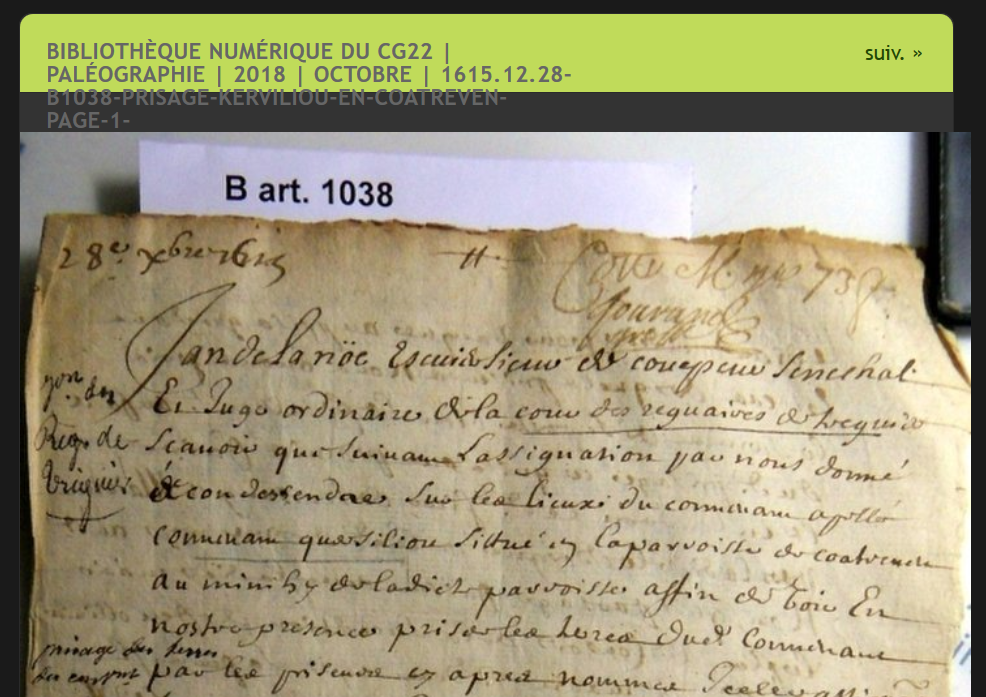 BIBLIOTHÈQUE NUMÉRIQUE DU CG22 |
PALÉOGRAPHIE | 2018 | OCTOBRE | 1615.12.28-
B1038-PRISAGE-KERVILIOU-EN-COATREVEN-
PAGE-1-
suiv. »
B art. 1038
28e xbre 1615
Jan de la riöe Escuier sieur de Senechal
Et Juge ordinaire de la cour des reguaires de treguier
Scauoir que suiuant Lassignation par nous donné
de condescendre sur les lieux du conuenant apellé
conuenant quersiliou sittué en la parroisse de coatreuen
au minihy de ladicte parroisse affin de voir En
nostre presence priser les terres dud conuenant
par les priseurs cy apres nommes
Reg. de
treguier
prisage des terres